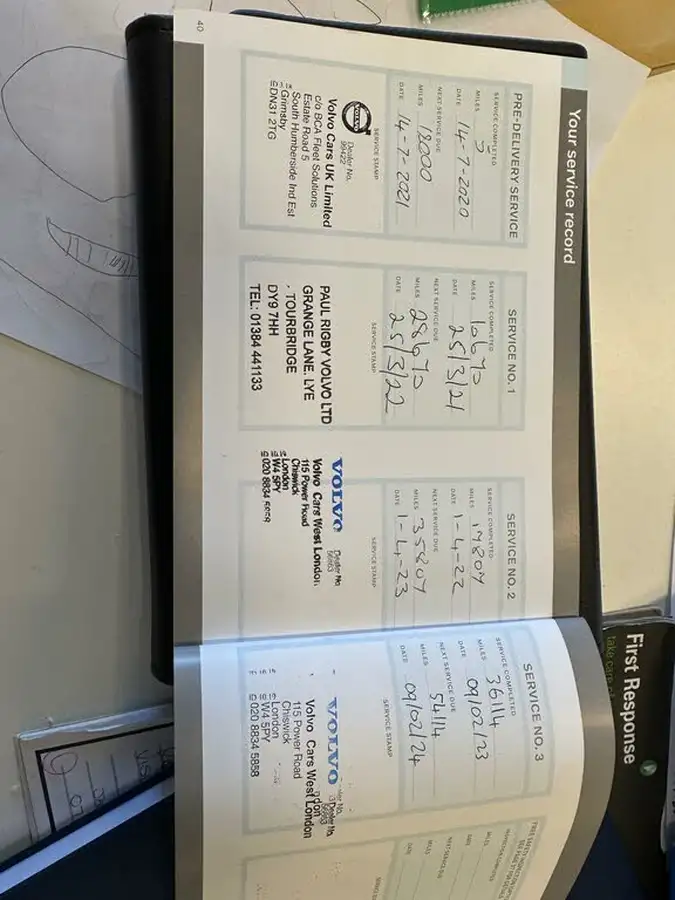 40
Your service record
PRE-DELIVERY SERVICE
SERVICE COMPLETED
MILES 5
DATE 14-7-2020
NEXT SERVICE DUE
MILES 18000
DATE 14-7-2021
SERVICE STAMP
VOLVO
Dealer No.
99422
Volvo Cars UK Limited
c/o BCA Fleet Solutions
Estate Road 5
South Humberside Ind Est
Grimsby
DN31 2TG
SERVICE NO. 1
SERVICE COMPLETED
MILES 10670
DATE 25/3/21
NEXT SERVICE DUE
MILES 28670
DATE 25/3/22
SERVICE STAMP
PAUL RIGBY VOLVO LTD
GRANGE LANE, LYE
, TOURBRIDGE
DY9 7HH
TEL: 01384 441133
SERVICE NO. 2
SERVICE COMPLETED
MILES 17807
DATE 1-4-22
NEXT SERVICE DUE
MILES 35807
DATE 1-4-23
SERVICE STAMP
VOLVO
Dealer No.
56963
Volvo Cars West London
115 Power Road
Chiswick
London
W4 5PY
020 8834 5858
SERVICE NO. 3
SERVICE COMPLETED
MILES 36114
DATE 09/02/23
NEXT SERVICE DUE
MILES 54114
DATE 09/02/24
SERVICE STAMP
VOLVO
Dealer No.
56963
Volvo Cars West London
115 Power Road
Chiswick
London
W4 5PY
020 8834 5858
MILES
DATE
NEXT SERVICE DUE
MILES
DATE
First Response
take care